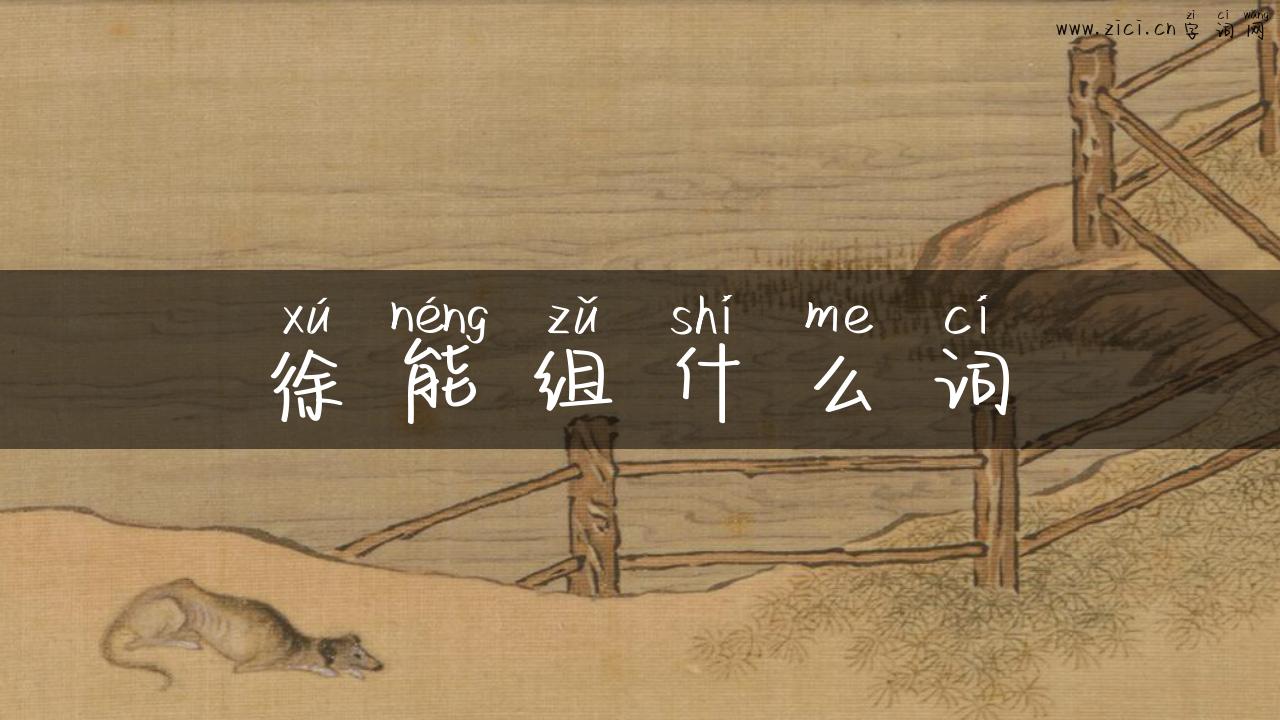 zì cí wǎng
www.zici.cn 字词网
xú néng zǔ shí me cí
徐能组什么词